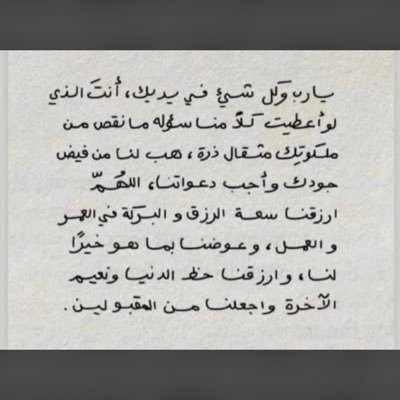 يارب وكل شيئ في يديك، أنتَ الذي
لو أعطيت كلاً منا سؤله ما نقص من
ملكوتِك مثقال ذرة، هب لنا من فيض
جودك وأجب دعواتنا، اللهُمّ
ارزقنا سعة الرزق و البركة في العمر
و العمل، وعوضنا بما هو خيرًا
لنا، وارزقنا حظ الدنيا ونعيم
الآخرة واجعلنا من المقبولين.